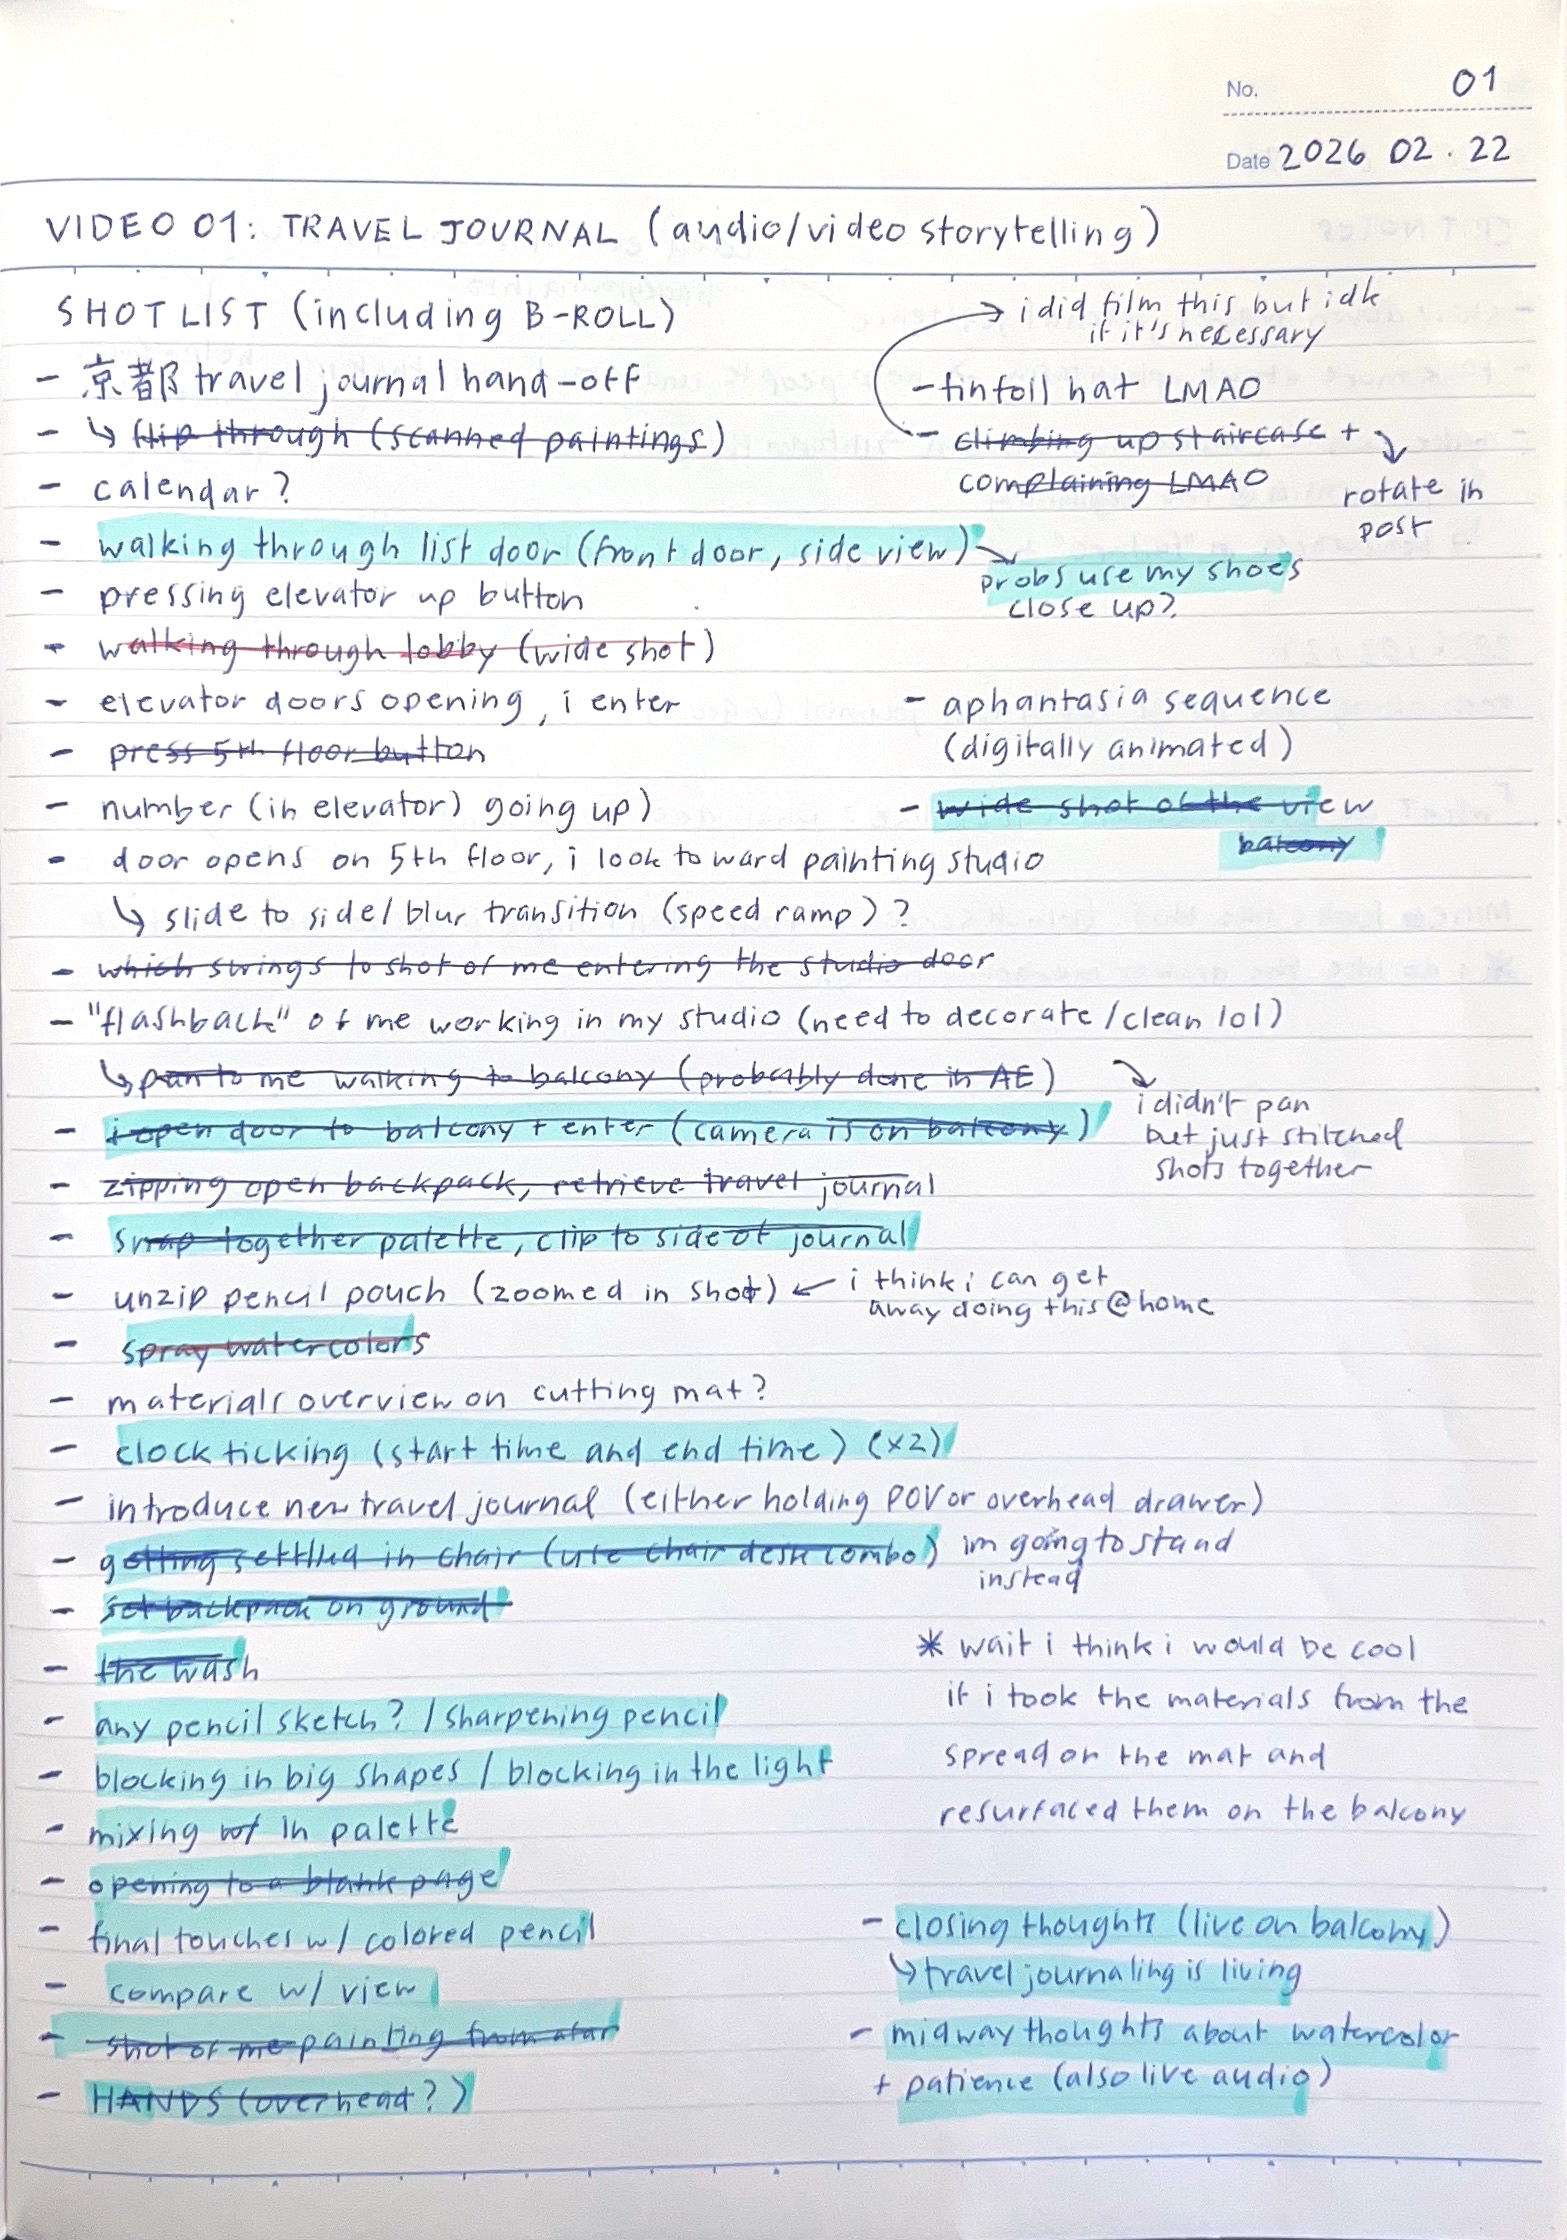 No. 01
Date 2026 02.22
VIDEO 01: TRAVEL JOURNAL (audio/video storytelling)
SHOT LIST (including B-ROLL)
- 京都 travel journal hand-off
- ↳ flip through (scanned paintings)
- calendar?
- walking through list door (front door, side view)
probs use my shoes
close up?
- pressing elevator up button
- walking through lobby (wide shot)
- elevator doors opening, i enter
- press 5th floor button
- number (in elevator) going up)
- door opens on 5th floor, i look toward painting studio
↳ slide to side/blur transition (speed ramp)?
- which swings to shot of me entering the studio door
- "flashback" of me working in my studio (need to decorate/clean lol)
↳ pan to me walking to balcony (probably done in AE)
i didn't pan
but just stitched
shots together
- i open door to balcony + enter (camera is on balcony)
- zipping open backpack, retrieve travel journal
- snap together palette, clip to side of journal
- unzip pencil pouch (zoomed in shot) ← i think i can get
away doing this @ home
- spray watercolors
- materials overview on cutting mat?
- clock ticking (start time and end time) (x2)
- introduce new travel journal (either holding POV or overhead drawer)
- getting settled in chair (use chair desk combo) im going to stand
instead
- set backpack on ground
- the wash
- any pencil sketch? / sharpening pencil
- blocking in big shapes / blocking in the light
- mixing in palette
- opening to a blank page
- final touches w/ colored pencil
- compare w/ view
- shot of me painting from afar
- HANDS (overhead?)
→ i did film this but idk
if it's necessary
- tinfoil hat LMAO
- climbing up staircase +
complaining LMAO
rotate in
post
- aphantasia sequence
(digitally animated)
- wide shot of the view
balcony
* wait i think i would be cool
if i took the materials from the
spread on the mat and
resurfaced them on the balcony
- closing thoughts (live on balcony)
↳ travel journaling is living
- midway thoughts about watercolor
+ patience (also live audio)